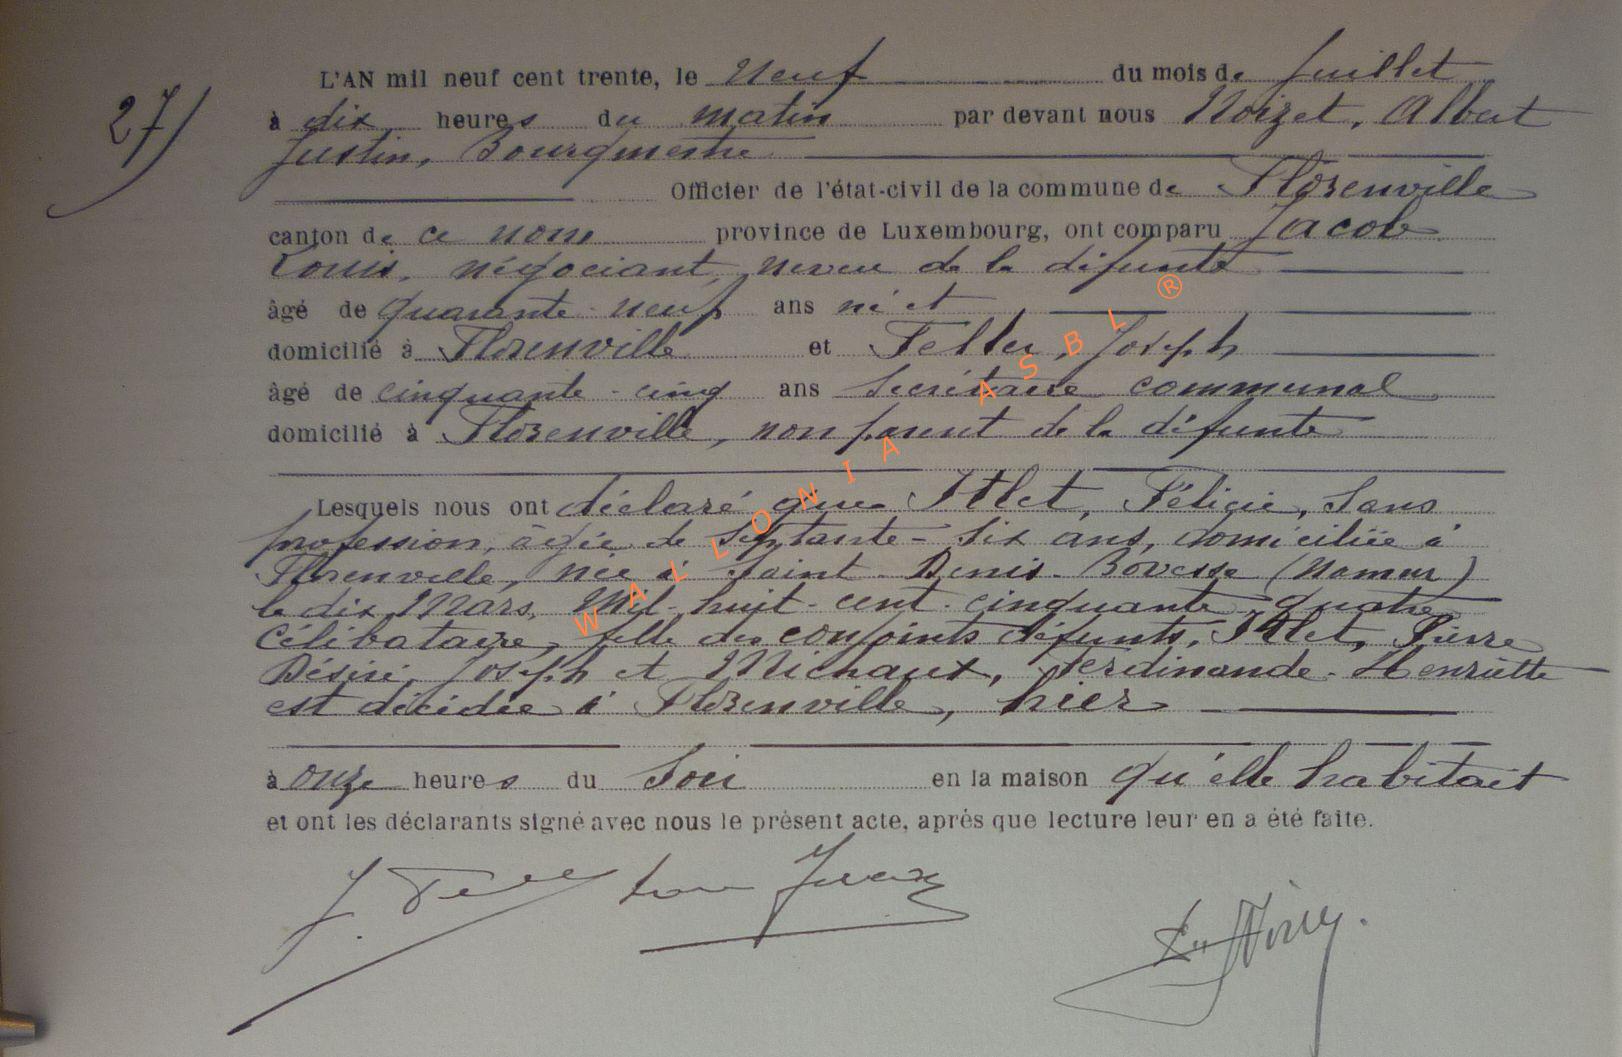 27)
L'AN mil neuf cent trente, le Neuf du mois de Juillet
à dix heures du matin par devant nous Noizet, Albert
Justin, Bourgmestre
Officier de l'état-civil de la commune de Florenville
canton de ce nom province de Luxembourg, ont comparu Jacob
Louis, négociant, neveu de la défunte
âgé de quarante-neuf ans né et
domicilié à Florenville et Feller, Joseph
âgé de cinquante-cinq ans secrétaire communal
domicilié à Florenville, non parent de la défunte
Lesquels nous ont déclaré que Félicie, Sans
profession, âgée de septante-six ans, domiciliée à
Florenville, née à Saint-Denis-Bovesse (Namur)
le dix Mars, Mil-huit-cent-cinquante-quatre
Célibataire, fille des conjoints défunts, Pierre
Désiré, Joseph et Michaux, Ferdinande-Henriette
est décédée à Florenville, hier
à onze heures du Soir en la maison qu'elle habitait
et ont les déclarants signé avec nous le présent acte, après que lecture leur en a été faite.
WALLONIA ASBL ®